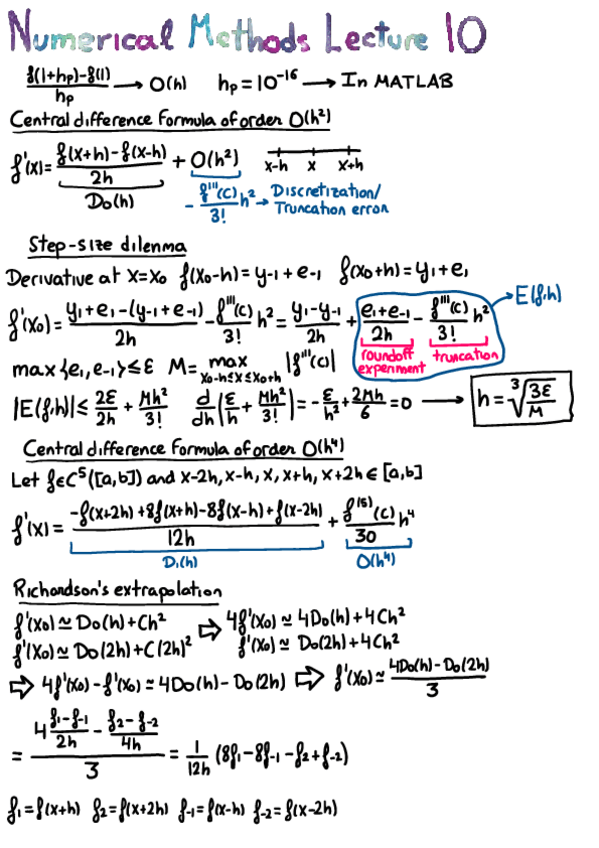 Numerical Methods Lecture 10
f(1+hp)-f(1)/hp → O(h) hp=10^-16 → In MATLAB
Central difference Formula of order O(h²)
f'(x)= f(x+h)-f(x-h)/2h + O(h²) x-h x x+h
Do(h) - f'''(c)/3! h² → Discretization/
Truncation error
Step-size dilenma
Derivative at x=x₀ f(x₀-h)=y-₁+e-₁ f(x₀+h)=y₁+e₁
f'(x₀)= y₁+e₁-(y-₁+e-₁)/2h - f'''(c)/3! h² = y₁-y-₁/2h + e₁+e-₁/2h - f'''(c)/3! h² → E(f,h)
roundoff truncation
experiment
max{e₁,e-₁}≤ε M= max x₀-h≤x≤x₀+h |f'''(c)|
|E(f,h)|≤ 2ε/2h + Mh²/3! d/dh(ε/h + Mh²/3!)=-ε/h²+2Mh/6=0 → h=∛(3ε/M)
Central difference Formula of order O(h⁴)
Let f∈C⁵([a,b]) and x-2h, x-h, x, x+h, x+2h∈[a,b]
f'(x)= -f(x+2h)+8f(x+h)-8f(x-h)+f(x-2h)/12h + f⁽⁵⁾(c)/30 h⁴
D₁(h) O(h⁴)
Richardson's extrapolation
f'(x₀)≃Do(h)+Ch² ⇒ 4f'(x₀)≃4Do(h)+4Ch²
f'(x₀)≃Do(2h)+C(2h)² f'(x₀)≃Do(2h)+4Ch²
⇒ 4f'(x₀)-f'(x₀)≃4Do(h)-Do(2h) ⇒ f'(x₀)≃ 4Do(h)-Do(2h)/3
= (4 f₁-f-₁/2h - f₂-f-₂/4h)/3 = 1/12h (8f₁-8f-₁-f₂+f-₂)
f₁=f(x+h) f₂=f(x+2h) f-₁=f(x-h) f-₂=f(x-2h)